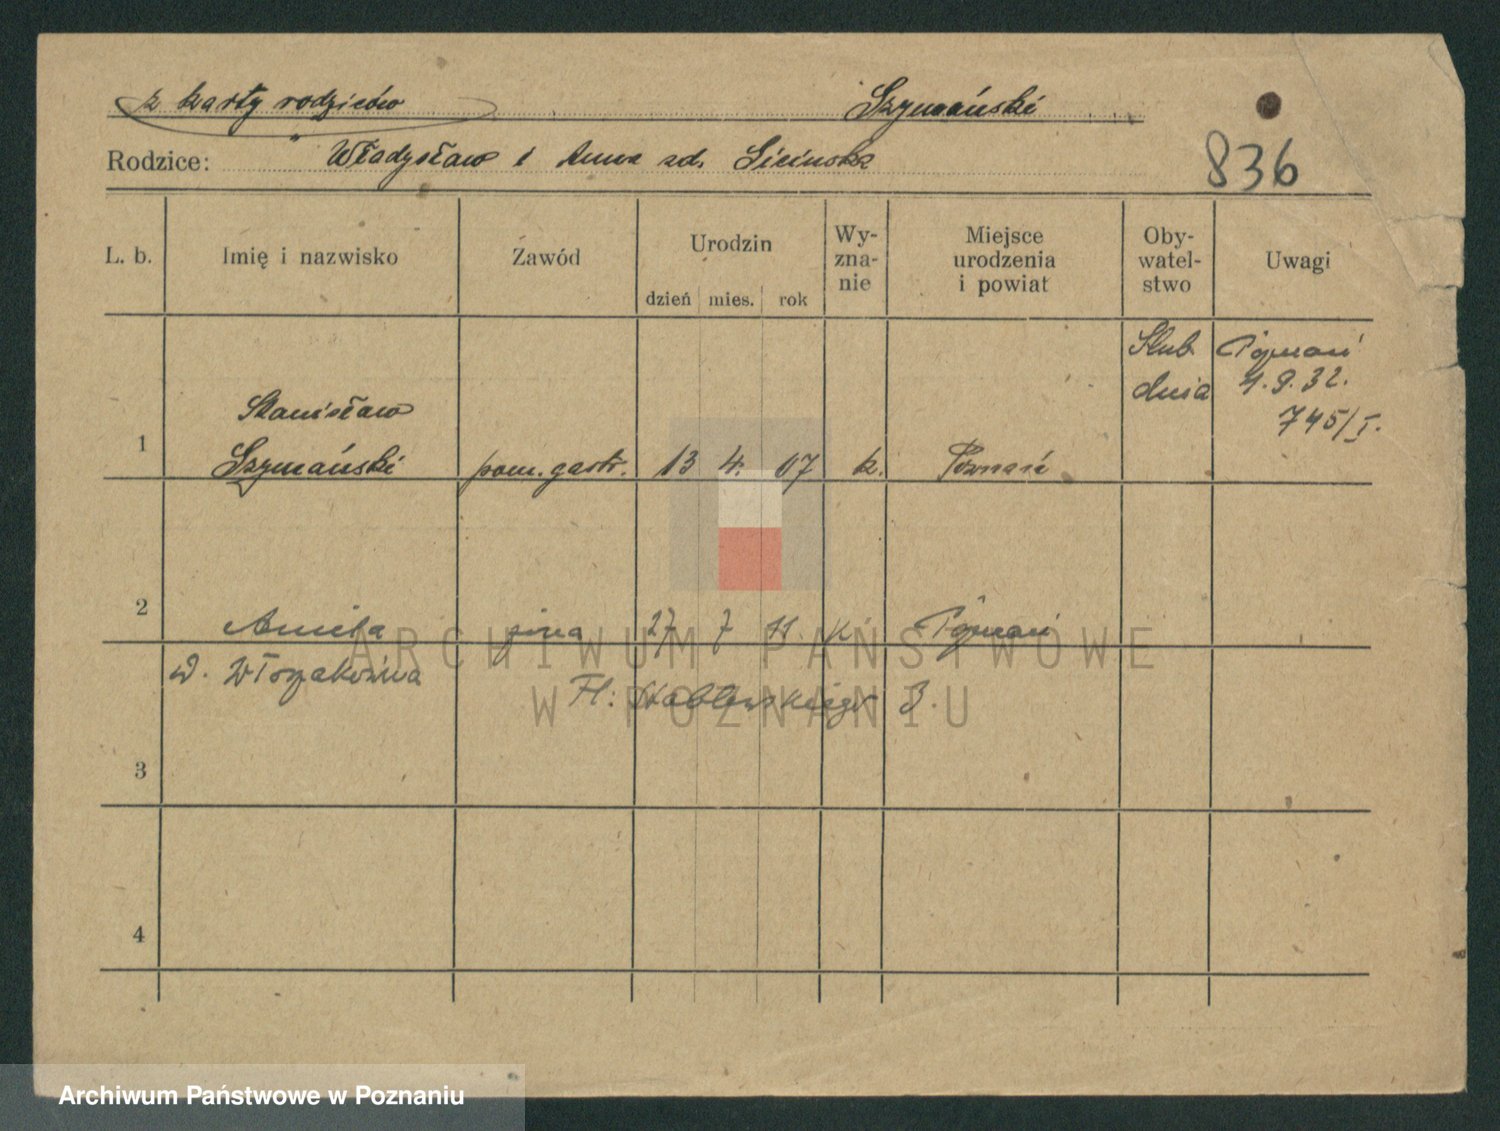 z karty rodziców Szymański
Rodzice: Władysław i Anna zd. Licinska
836
L. b. Imię i nazwisko Zawód Urodzin dzień mies. rok Wy-zna-nie Miejsce urodzenia i powiat Oby-watel-stwo Uwagi
Ślub Poznań
dnia 4.9.32.
745/I.
Stanisław
1 Szymański pom. gastr. 13 4. 07 k. Poznań
2 Aniela żona 27 7 11 k Poznań
ARCHIWUM PAŃSTWOWE
W POZNANIU
3
4
Archiwum Państwowe w Poznaniu